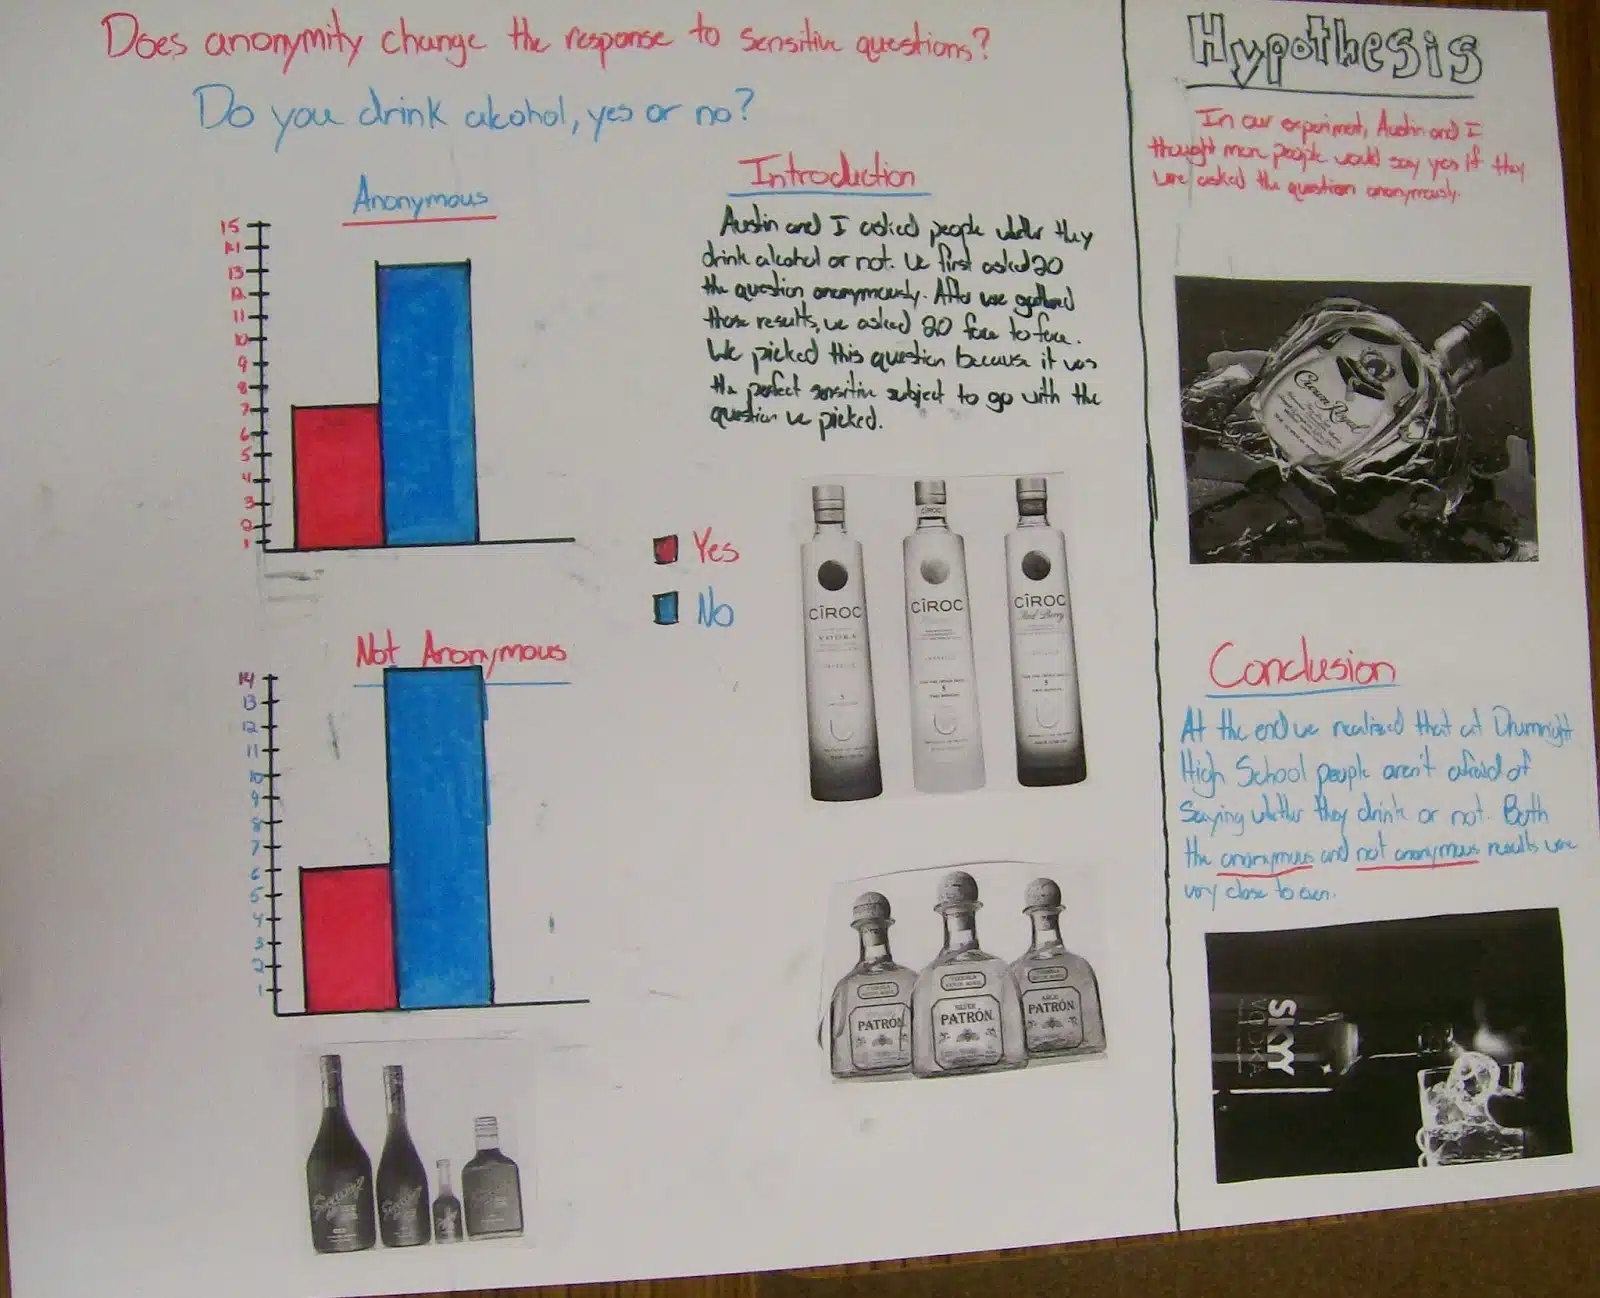 Does anonymity change the response to sensitive questions?
Do you drink alcohol, yes or no?
Anonymous
15
14
13
12
11
10
9
8
7
6
5
4
3
2
1
Yes
No
Not Anonymous
14
13
12
11
10
9
8
7
6
5
4
3
2
1
Introduction
Austin and I asked people whether they
drink alcohol or not. We first asked 20
the question anonymously. After we gathered
those results, we asked 20 face to face.
We picked this question because it was
the perfect sensitive subject to go with the
question we picked.
CÎROC
CÎROC
VODKA
CÎROC
CÎROC
Red Berry
PATRÓN
SILVER
PATRÓN
PATRÓN
Hypothesis
In our experiment, Austin and I
thought more people would say yes if they
were asked the question anonymously.
Crown Royal
Conclusion
At the end we realized that at Drumright
High School people aren't afraid of
saying whether they drink or not. Both
the anonymous and not anonymous results were
very close to even.
SKYY
VODKA